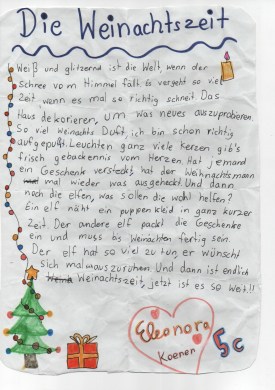 Die Weinachtszeit
Weiß und glitzernd ist die Welt, wenn der
Schnee vom Himmel fält. Es vergeht so viel
Zeit wenn es mal so richtig schneit. Das
Haus dekorieren, um was neues auszuprobieren.
So viel weinachts Duft, ich bin schon richtig
aufgepuft. Leuchten ganz viele kerzen gib's
frisch gebackennis vom Herzen. Hat jemand
ein Geschenk versteckt, hat der Weihnachtsmann
mal wieder was ausgeheckt. Und dann
noch die elfen, was sollen die wohl helfen?
Ein elf näht ein puppenkleid in ganz kurzer
Zeit. Der andere elf packt die Geschenke
ein und muss bis Weinachten fertig sein.
Der elf hat so viel zu tun, er wünscht
sich mal maus zuruhen. Und dann ist endlich
Weinachtszeit, jetzt ist es so weit!!
Eleonora
Koener
5c